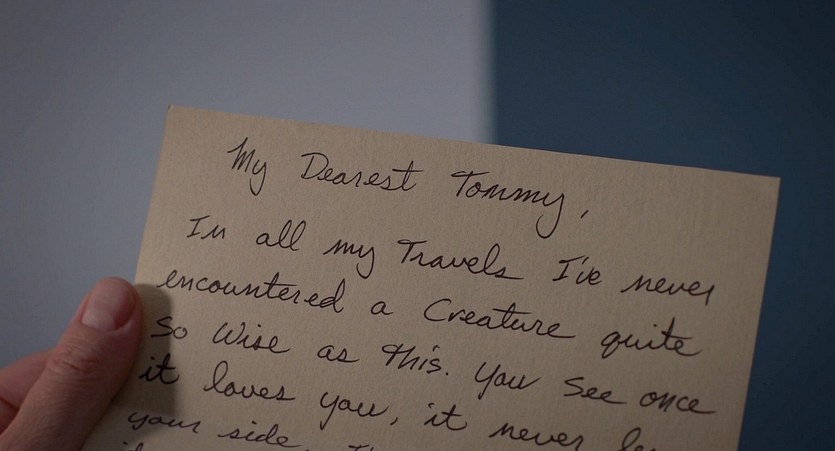 My Dearest Tommy,
In all my Travels I've never
encountered a Creature quite
so Wise as this. You See once
it loves you, it never
your side.